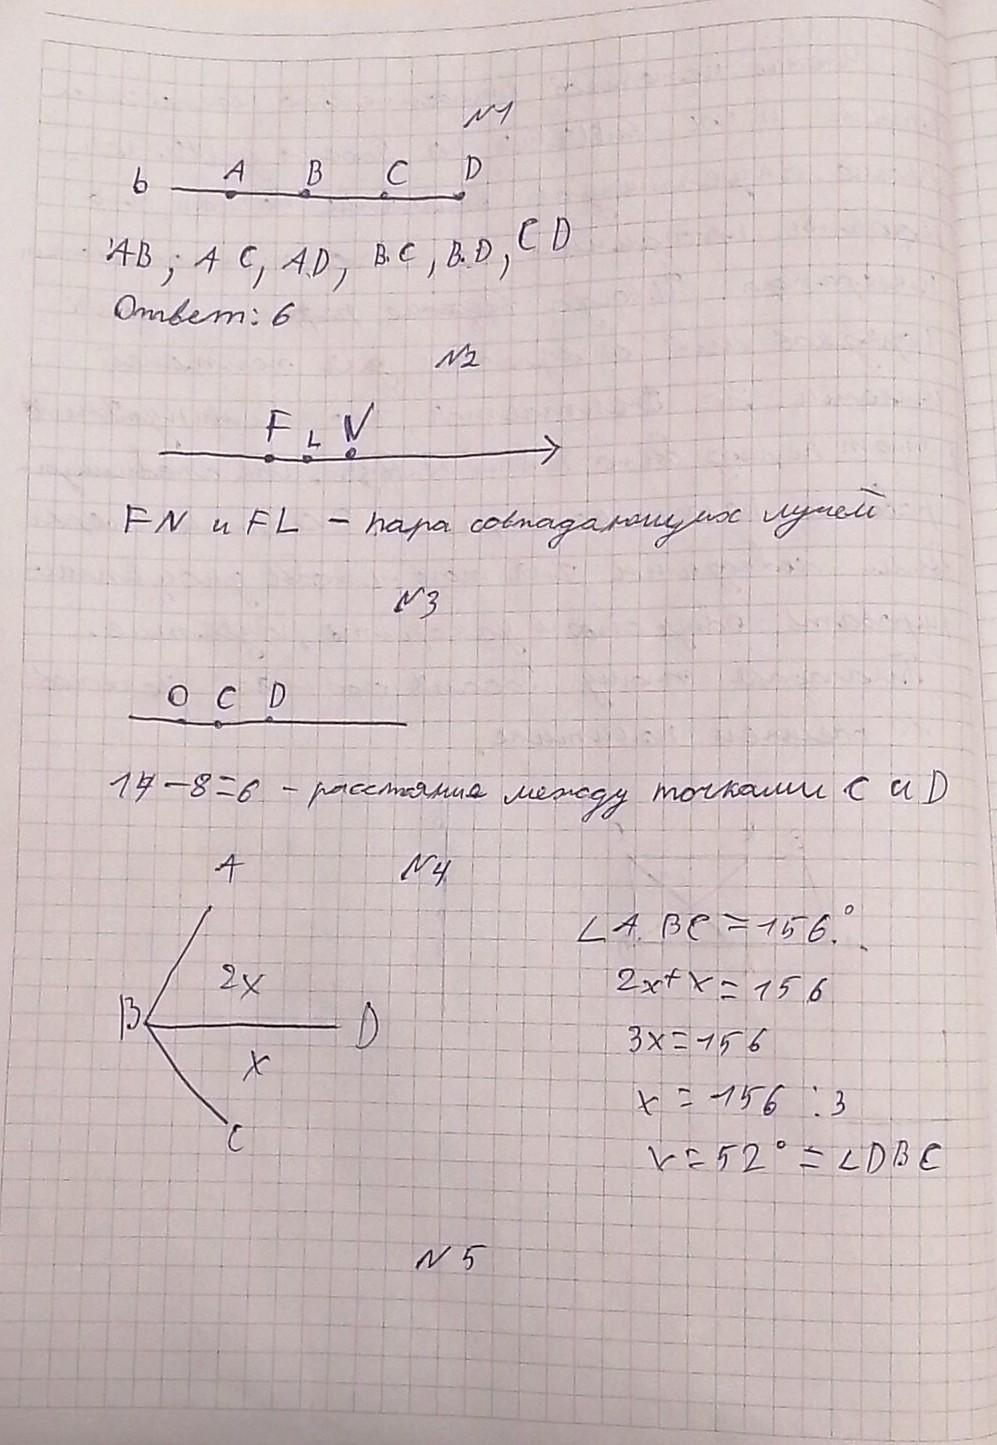 №1
b A B C D
AB; AC, AD, BC, BD, CD
Ответ: 6
№2
F L N
FN и FL – пара совпадающих лучей
№3
O C D
14 – 8 = 6 – расстояние между точками C и D
№4
A
∠ABC = 156°
2x
2x + x = 156
B D
3x = 156
x
x = 156 : 3
C
x = 52° = ∠DBC
№5